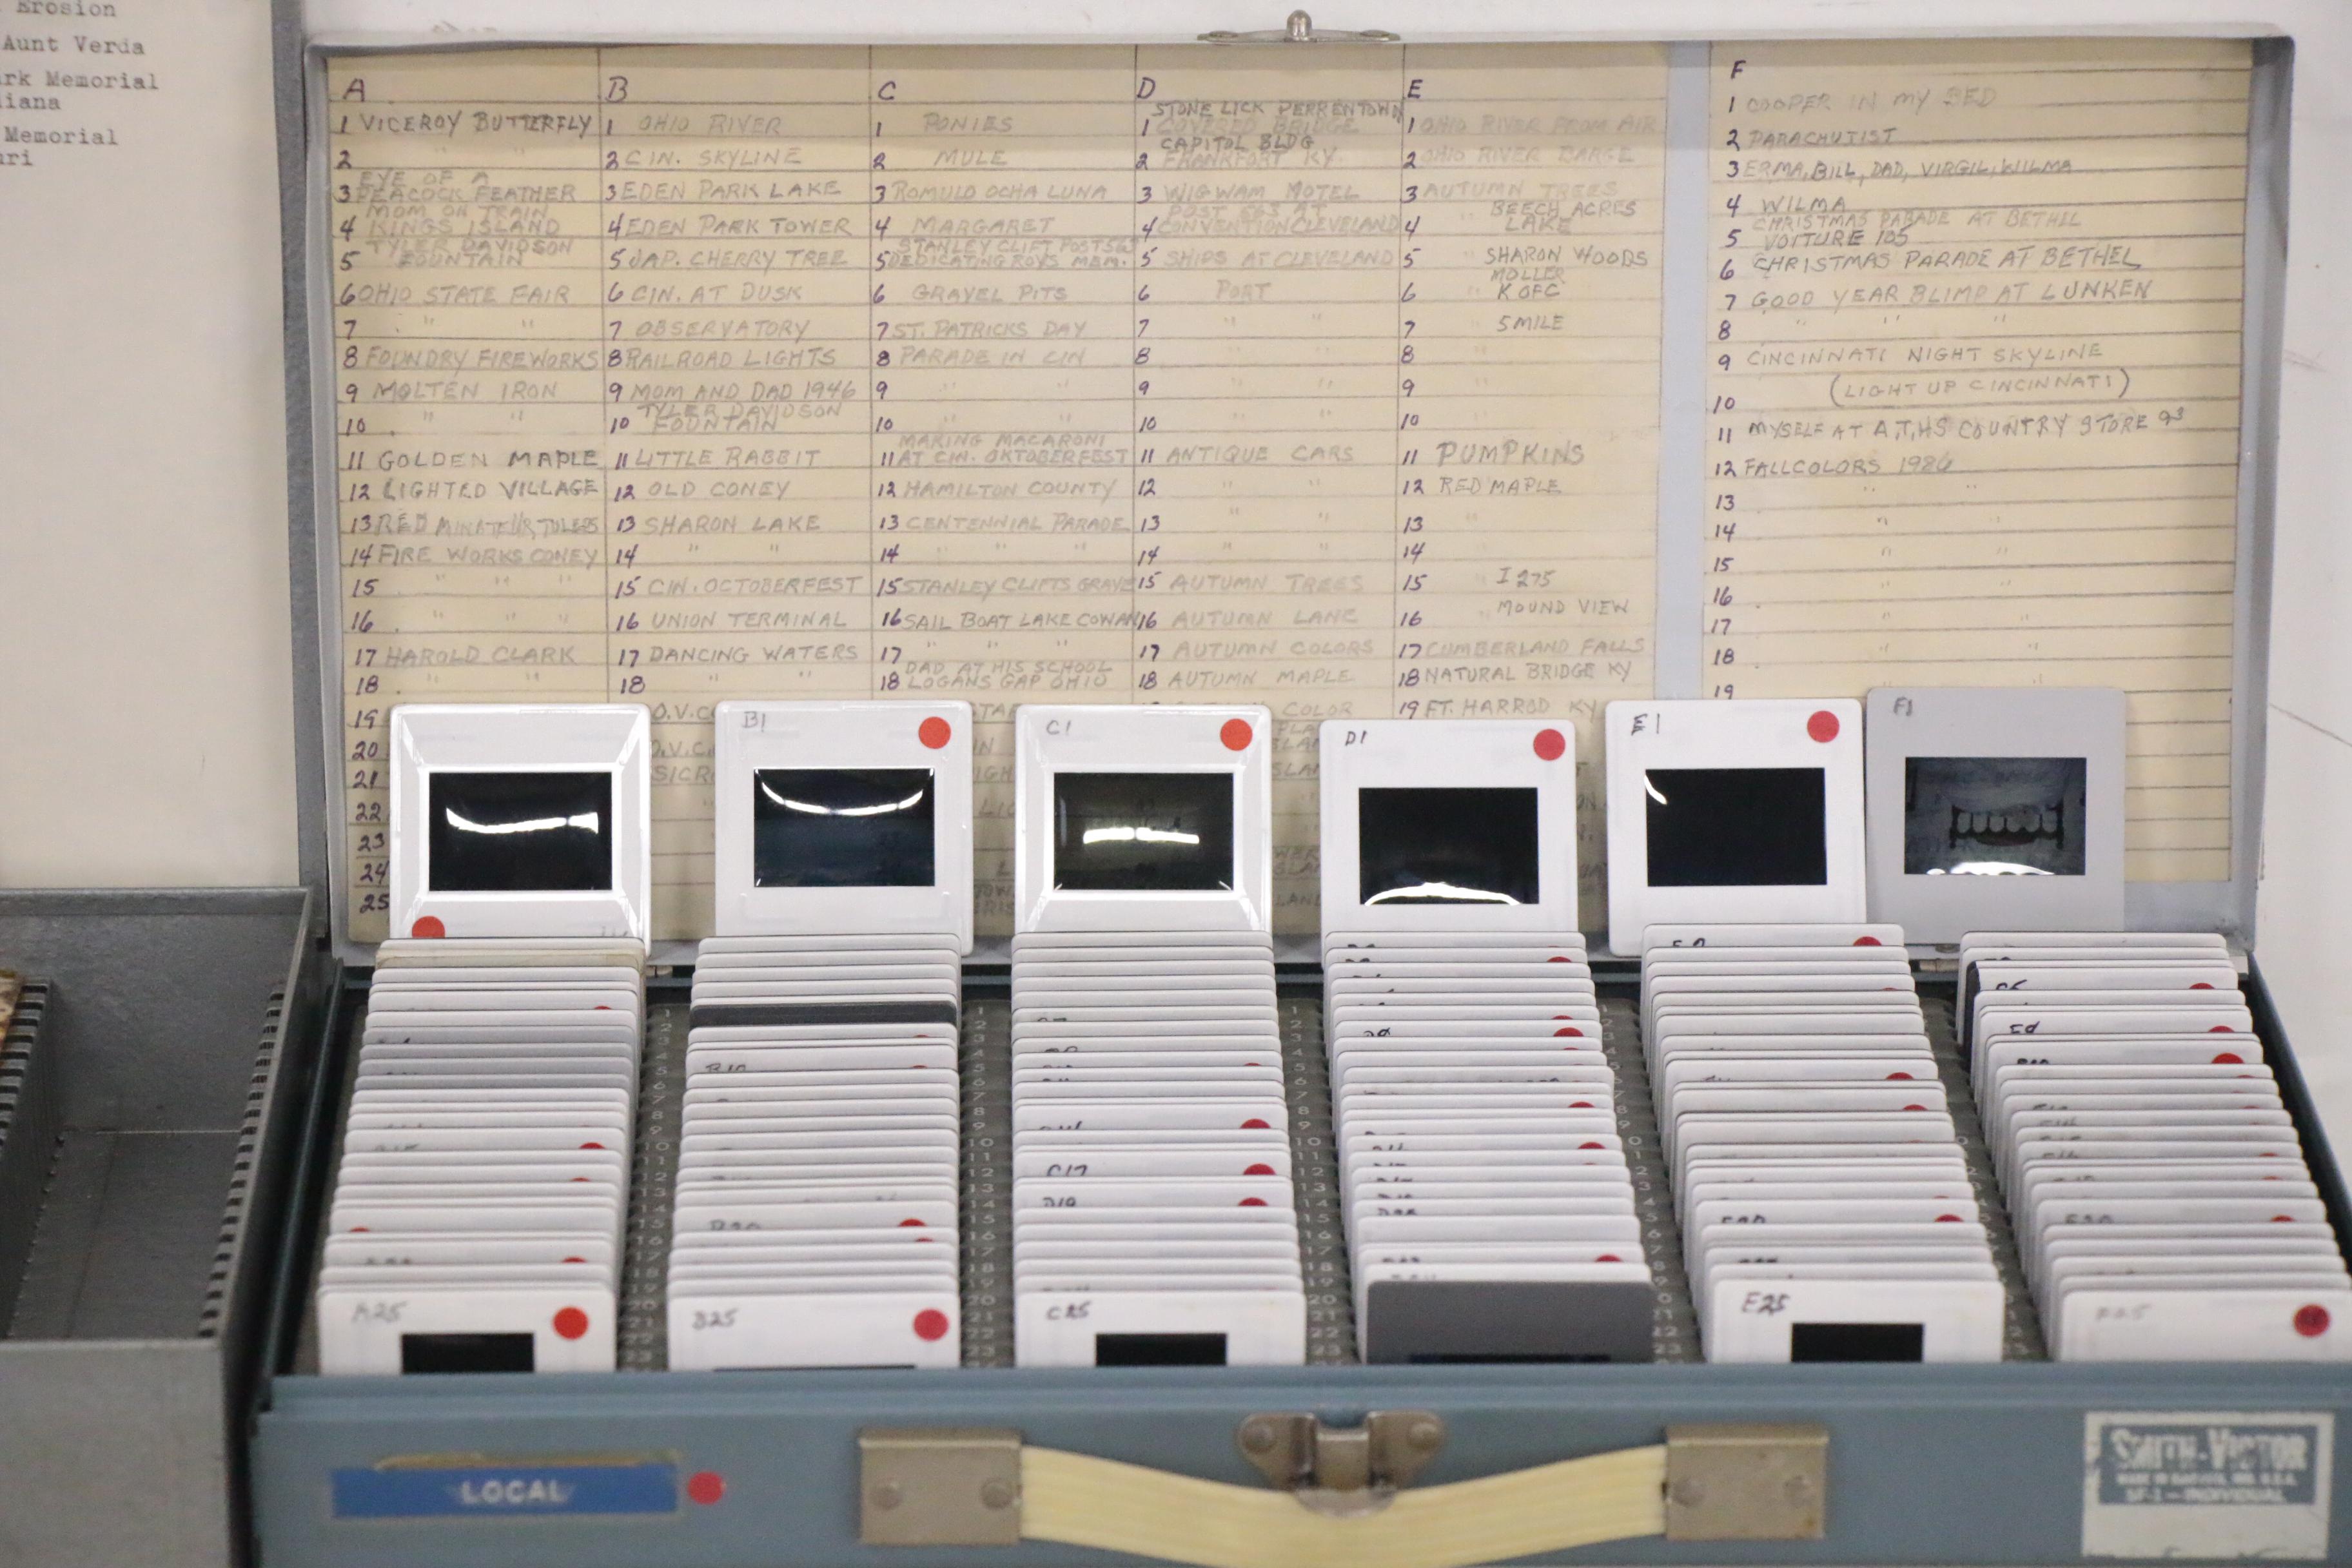 Erosion
Aunt Verda
ark Memorial
iana
Memorial
uri
A
1 VICEROY BUTTERFLY
2 " "
3 EYE OF A
PEACOCK FEATHER
4 MOM ON TRAIN
KINGS ISLAND
5 TYLER DAVIDSON
FOUNTAIN
6 OHIO STATE FAIR
7 " "
8 FOUNDRY FIREWORKS
9 MOLTEN IRON
10 " "
11 GOLDEN MAPLE
12 LIGHTED VILLAGE
13 RED
14 FIRE WORKS CONEY
15 " " "
16 " " "
17 HAROLD CLARK
18 " "
19
20
21
22
23
24
25
B
1 OHIO RIVER
2 CIN. SKYLINE
3 EDEN PARK LAKE
4 EDEN PARK TOWER
5 JAP. CHERRY TREE
6 CIN. AT DUSK
7 OBSERVATORY
8 RAILROAD LIGHTS
9 MOM AND DAD 1946
10 TYLER DAVIDSON
FOUNTAIN
11 LITTLE RABBIT
12 OLD CONEY
13 SHARON LAKE
14 " "
15 CIN. OCTOBERFEST
16 UNION TERMINAL
17 DANCING WATERS
18 " "
C
1 PONIES
2 MULE
3 ROMULO OCHA LUNA
4 MARGARET
5 STANLEY CLIFT POST 563
DEDICATING ROYS MEM.
6 GRAVEL PITS
7 ST. PATRICKS DAY
8 PARADE IN CIN
9 " "
10 " "
11 MAKING MACARONI
AT CIN. OKTOBERFEST
12 HAMILTON COUNTY
13 CENTENNIAL PARADE
14 " " "
15 STANLEY CLIFTS GRAVE
16 SAIL BOAT LAKE COWAN
17 " " "
18 DAD AT HIS SCHOOL
LOGANS GAP OHIO
D
1 STONE LICK PERRENTOWN
COVERED BRIDGE
2 CAPITOL BLDG
FRANKFORT KY.
3 WIGWAM MOTEL
4 POST 563 AT
CONVENTION CLEVELAND
5 SHIPS AT CLEVELAND
6 PORT
7 " "
8
9 " "
10 " "
11 ANTIQUE CARS
12 " "
13 " "
14 " "
15 AUTUMN TREES
16 AUTUMN LANE
17 AUTUMN COLORS
18 AUTUMN MAPLE
COLOR
E
1 OHIO RIVER FROM AIR
2 OHIO RIVER BARGE
3 AUTUMN TREES
4 " BEECH ACRES
LAKE
5 " SHARON WOODS
6 " MOLLER
K OFC
7 " 5 MILE
8 "
9 "
10 "
11 PUMPKINS
12 RED MAPLE
13 "
14 "
15 " I 275
16 " MOUND VIEW
17 CUMBERLAND FALLS
18 NATURAL BRIDGE KY
19 FT. HARROD KY
F
1 COOPER IN MY BED
2 PARACHUTIST
3 ERMA, BILL, DAD, VIRGIL, WILMA
4 WILMA
5 CHRISTMAS PARADE AT BETHEL
VOITURE 105
6 CHRISTMAS PARADE AT BETHEL
7 GOOD YEAR BLIMP AT LUNKEN
8 " " "
9 CINCINNATI NIGHT SKYLINE
10 (LIGHT UP CINCINNATI)
11 MYSELF AT A.T.HS COUNTRY STORE 93
12 FALLCOLORS 1986
13 " "
14 "
15 " "
16 " "
17 " "
18 " "
19
B1
C1
D1
E1
F1
B10
C17
A25
B25
C25
E25
F25
LOCAL
SMITH-VICTOR